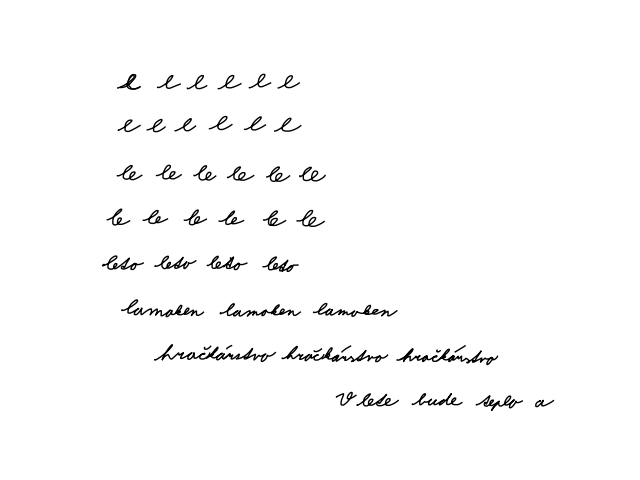 l l l l l l
l l l l l l
le le le le le le
le le le le le le
leto leto leto leto
hračkárstvo hračkárstvo hračkárstvo
V lete bude teplo a